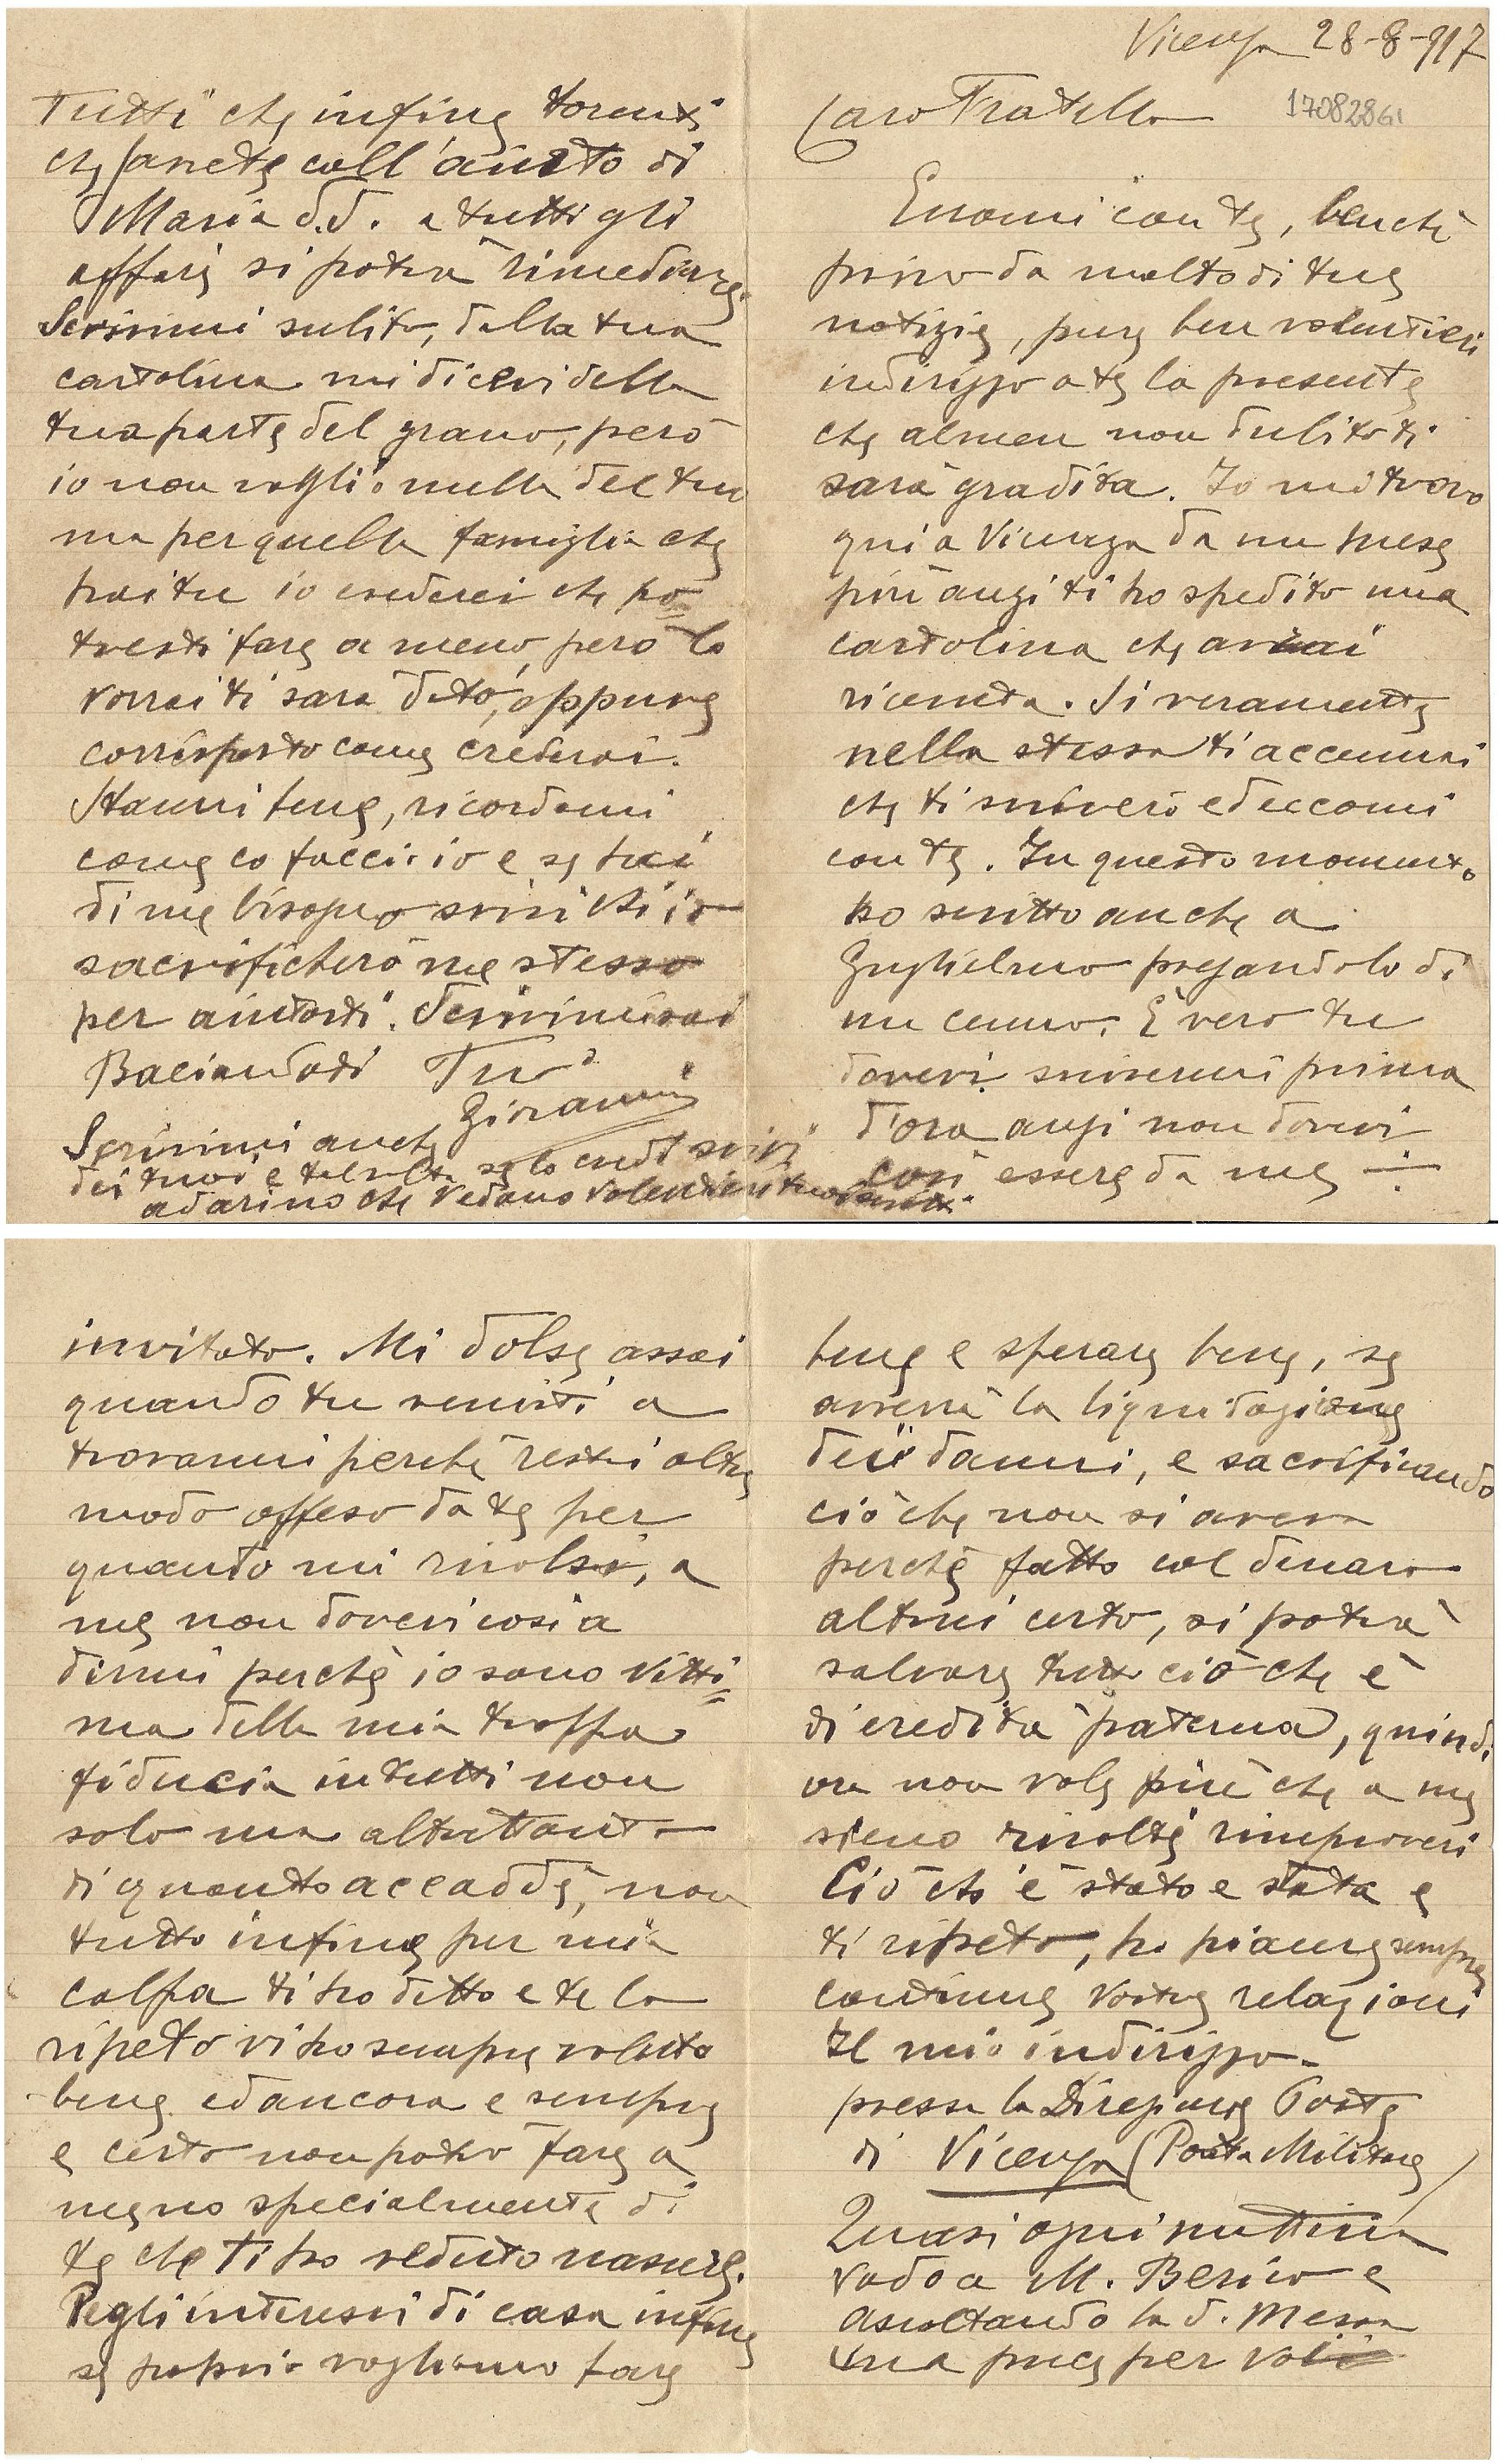 Vicenza 28-8-917
17082861
Caro Fratello
Eccomi con te, benchè
privo da molto di tue
notizie, pure ben volentieri
indirizzo a te la presente
che almen non dubito ti
sarà gradita. Io mi trovo
qui a Vicenza da un mese
più anzi ti ho spedito una
cartolina che avrai
ricevuta. Si veramente
nella stessa ti accennai
che ti scriverò ed eccomi
con te. In questo momento
ho scritto anche a
Guglielmo pregandolo di
un cenno. È vero tu
dovevi scrivermi prima
d'ora anzi non dovevi
così essere da me
invitato. Mi dolse assai
quando tu venisti a
trovarmi perchè restai oltre
modo offeso da te per
quanto mi rivolsi, a
me non dovevi così a
dirmi perchè io sono vitti=
ma della mia troppa
fiducia in tutti non
solo ma altrettanto
di quanto accadde, non
tutto infine per mia
colpa ti ho detto e te lo
ripeto vi ho sempre voluto
bene ed ancora e sempre
e certo non potrò fare a
meno specialmente di
te che ti ho veduto nascere.
Pegli interessi di casa infine
se proprio vogliamo fare
bene e sperare bene, se
avverrà la liquidazione
dei danni, e sacrificando
ciò che non si aveva
perchè fatto col denaro
altrui certo, si potrà
salvare tutto ciò che è
di eredità paterna, quindi
ora non vole più che a me
sieno rivolti rimproveri
Ciò ch'è stato è stato e
ti ripeto, ho piacere sempre
continue vostre relazioni
Il mio indirizzo.
presso la Direzione Poste
di Vicenza (Posta Militare)
Quasi ogni mattina
vado a M. Berico e
ascoltando la S. Messa
una prece per voi
Tutti che infine torniate
che sarete coll'aiuto di
Maria S.S. a tutti gli
affari si potrà rimediare.
Scrivimi subito, dalla tua
cartolina mi dicevi della
tua parte del grano, però
io non voglio nulla del tuo
ma per quella famiglia che
hai tu io crederei che po=
tresti fare a meno, però lo
vorrai ti sarà dato, oppure
corrisposto come crederai.
Stammi bene, ricordami
come lo faccio io e se hai
di me bisogno scrivi ch'io
sacrificherò me stesso
per aiutarti. Scrivimi
Baciandoti Tuo
Giovanni
Scrivimi anche
dei tuoi e talvolta se lo credi scrivi
ad arino che vedano volentieri